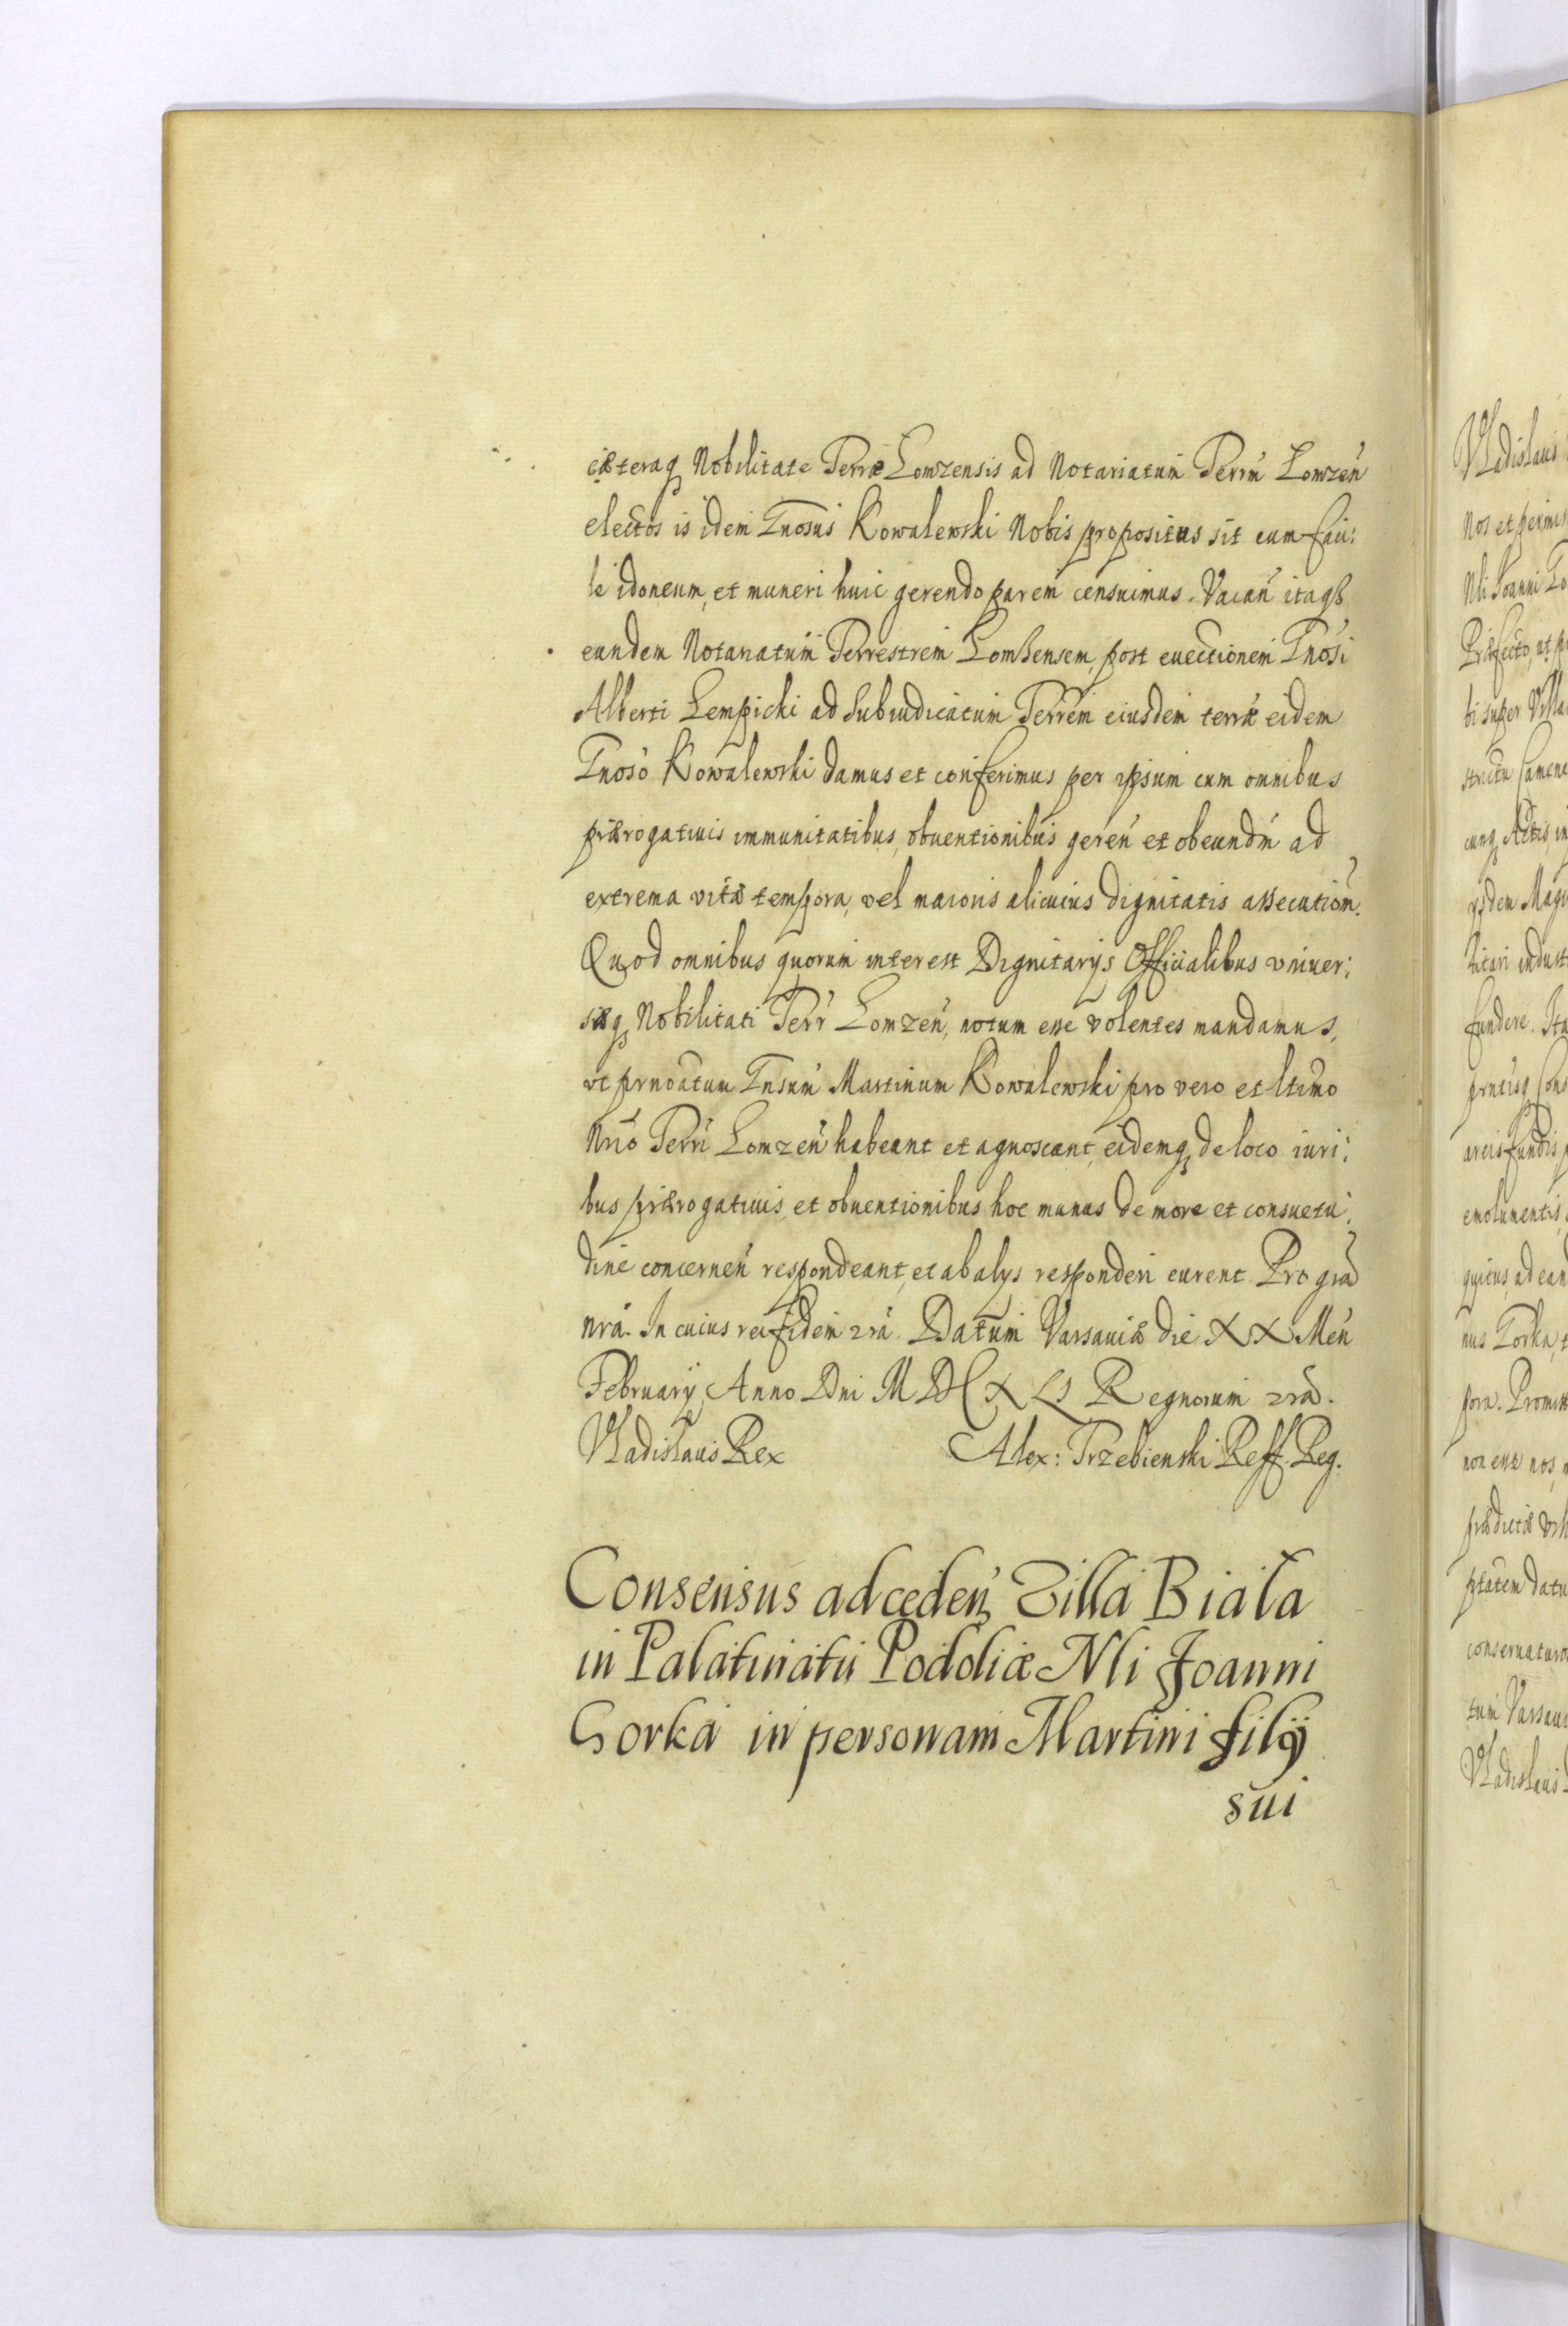 cæteraq Nobilitate Terræ Lomzensis ad Notariatum Terrń Lomzeń
electos is idem Gnosus Kowalewski Nobis propositus sit eum faci:
le idoneum, et muneri huic gerendo parem censuimus. Vacań itaq
eundem Notariatum Terrestrem Lomzensem, post euectionem Gnosi
Alberti Lempicki ad Subiudicatum Terrem eiusdem terræ eidem
Gnoso Kowalewski damus et conferimus per ipsum cum omnibus
prærogatiuis immunitatibus, obuentionibus gereń et obeundń ad
extrema vitæ tempora, vel maioris alicuius dignitatis assecutioń.
Quod omnibus quorum interest Dignitarijs Officialibus vniuer:
sæq Nobilitati Terr Lomzeń, notum esse volentes mandamus,
vt prnoatum Gnsum Martinum Kowalewski pro vero et ltimo
Nrio Terrń Lomzeń habeant et agnoscant, eidemq de loco iuri:
bus prærogatiuis, et obuentionibus hoc munus de more et consuetu:
dine conterneń respondeant, et ab alys responderi curent. Pro gra
nra. In cuius rei fidem 2ra. Datum Varsauiæ die XX Meń
February Anno Dni M D C X L I Regnorum 2ra.
Vladislaus Rex Alex: Trzebienski Reff. Reg.
Consensus ad cedeń Villa Biała
in Palatinatu Podoliæ Nli Joanni
Gorka in personam Martini filÿ
sui
Vladislaus
Nos et permis
Nli Joanni Go
Præfecto, ut p
bi super Villa
strictu Camene
cunq Actis, in
ysdem Magi
fundere. Ita
arcis fundis p
emolumentis,
nus Gorka, e
pora. Promitt
non esse nos,
prædicta Vil
conseruaturos
tum Varsaui
Vladislaus